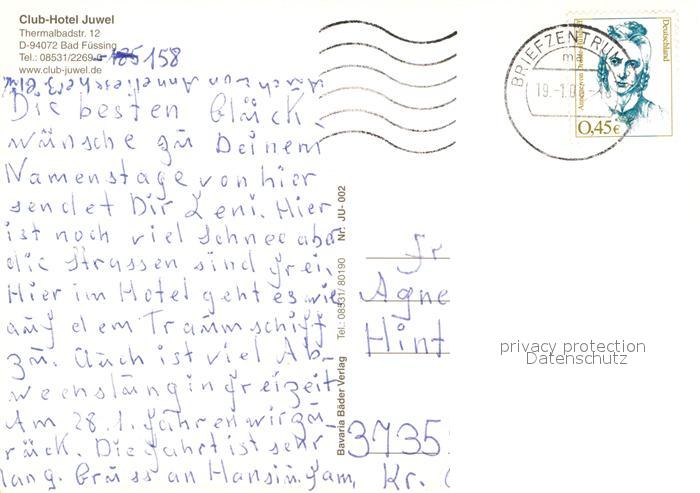 Club-Hotel Juwel
Thermalbadstr. 12
D-94072 Bad Füssing
Tel.: 08531/2269-0 158
www.club-juwel.de
Auch von Anneliese herzl.
Die besten Glück
wünsche zu Deinem
Namenstage von hier
sendet Dir Leni. Hier
ist noch viel Schnee aber
die Strassen sind frei.
Hier im Hotel geht es wie
auf dem Traumschiff
zu. Auch ist viel Ab-
wechslung in Freizeit
Am 28.1. fahren wir zu-
rück. Die Fahrt ist sehr
lang. Gruss an Hansi u. Fam,
Bavaria Bäder Verlag Tel.: 08531/ 80190 Nr. JU- 002
BRIEFZENTRUM
19.-1.0
Deutschland
0,45€
Fr
Agne
Hint
3735
Kr.
privacy protection
Datenschutz